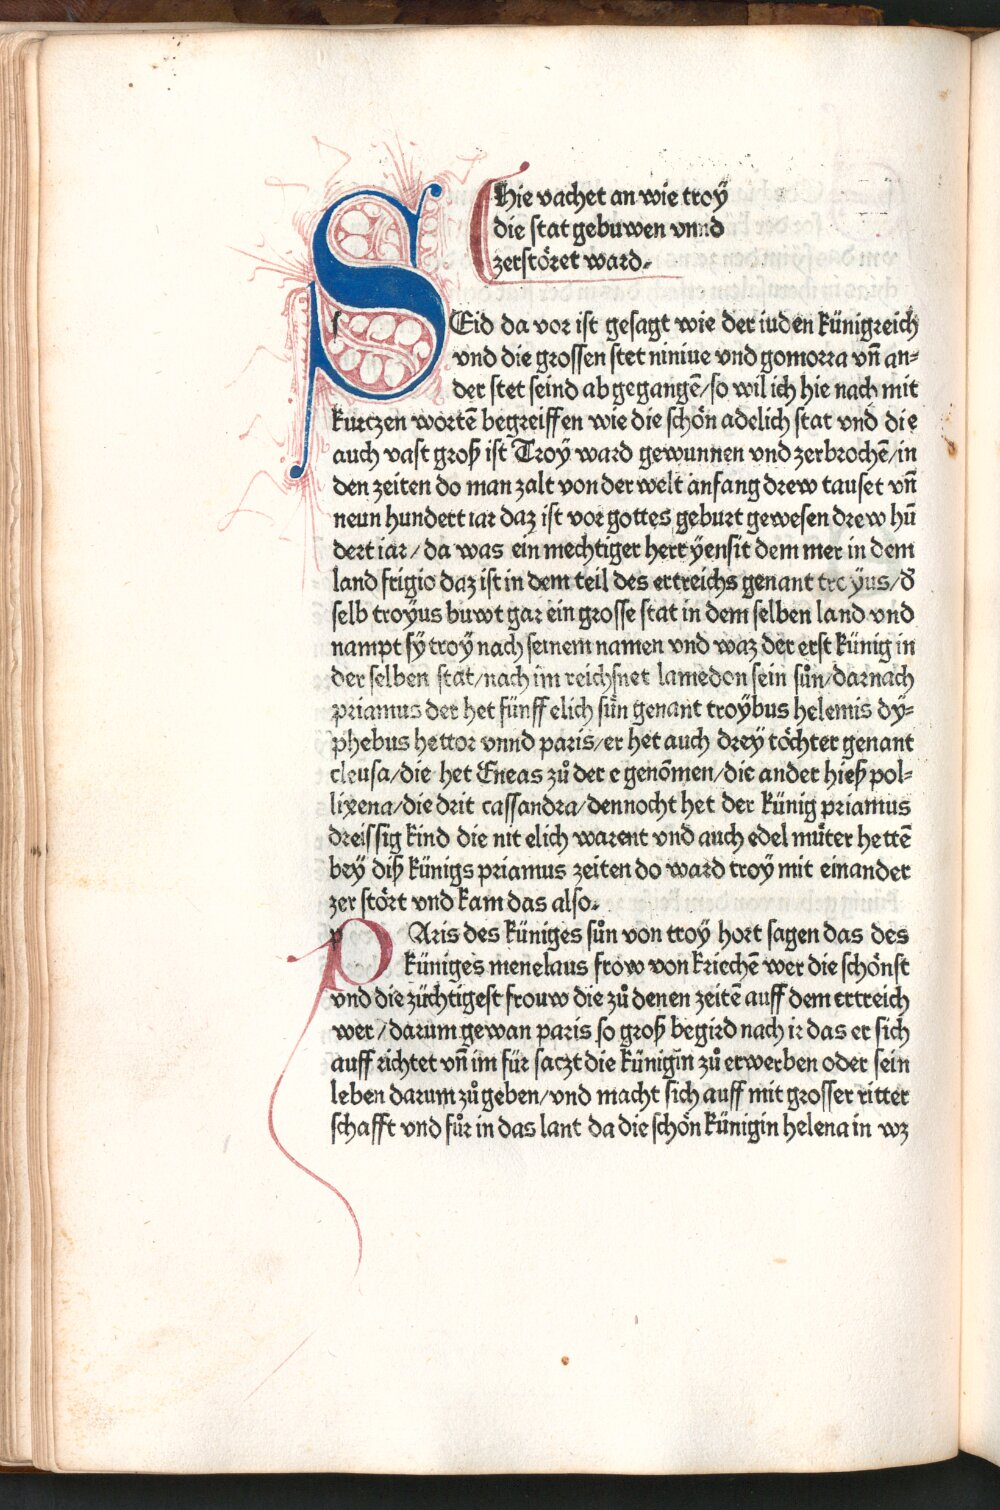 Hie vachet an wie troÿ
die stat gebuwen vnnd
zerstöret ward.
SEid da vor ist gesagt wie der iuden künigreich
vnd die grossen stet niniue vnd gomorra vn̄ an⸗
der stet seind abgegangē/so wil ich hie nach mit
kurtzen wortē begreiffen wie die schön adelich stat vnd die
auch vast groß ist Troÿ ward gewunnen vnd zerbrochē/in
den zeiten do man zalt von der welt anfang drew tauset vn̄
neun hundert iar daz ist vor gottes geburt gewesen drew hū
dert iar/da was ein mechtiger herr ÿensit dem mer in dem
land frigio daz ist in dem teil des ertreichs genant troÿus/d̕
selb troÿus buwt gar ein grosse stat in dem selben land vnd
nampt sÿ troÿ nach seinem namen vnd waz der erst künig in
der selben stat/nach im reichsnet lamedon sein sůn/darnach
priamus der het fünff elich sün genant troÿbus helemis dÿ⸗
phebus hettor vnnd paris/er het auch dreÿ töchter genant
cleusa/die het Eneas zů der e genōmen/die ander hieß pol⸗
lixena/die drit cassandra/dennocht het der künig priamus
dreissig kind die nit elich warent vnd auch edel můter hettē
beÿ diß künigs priamus zeiten do ward troÿ mit einander
zerstört vnd kam das also.
PAris des küniges sůn von troÿ hort sagen das des
küniges menelaus frow von kriechē wer die schönst
vnd die züchtigest frouw die zů denen zeitē auff dem ertreich
wer/darum gewan paris so groß begird nach ir das er sich
auff richtet vn̄ im für saczt die künigīn zů erwerben oder sein
leben darum zů geben/vnd macht sich auff mit grosser ritter
schafft vnd fůr in das lant da die schön künigin helena in wz